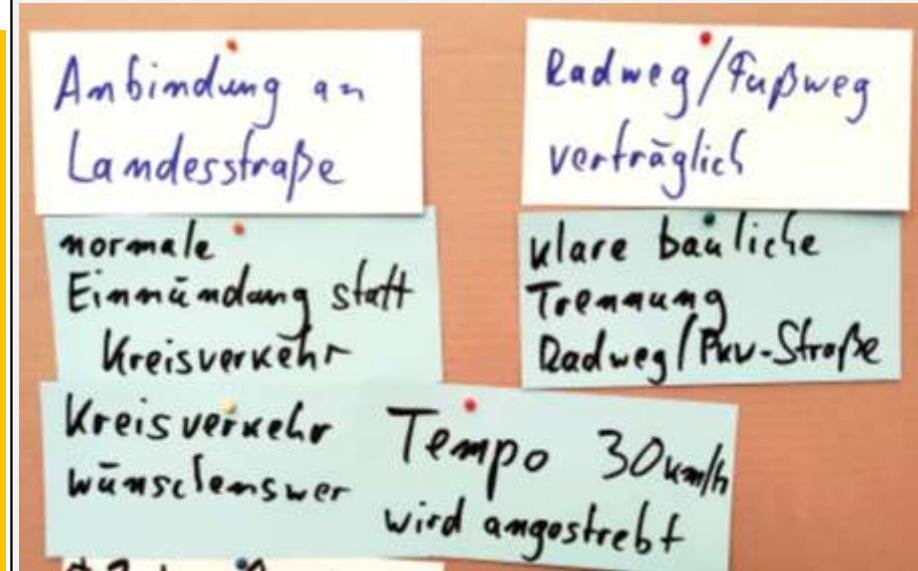 Anbindung an
Landesstraße
normale
Einmündung statt
Kreisverkehr
Kreisverkehr
wünschenswer
Radweg/Fußweg
verträglich
klare bauliche
Trennung
Radweg/Pkw-Straße
Tempo 30 km/h
wird angestrebt